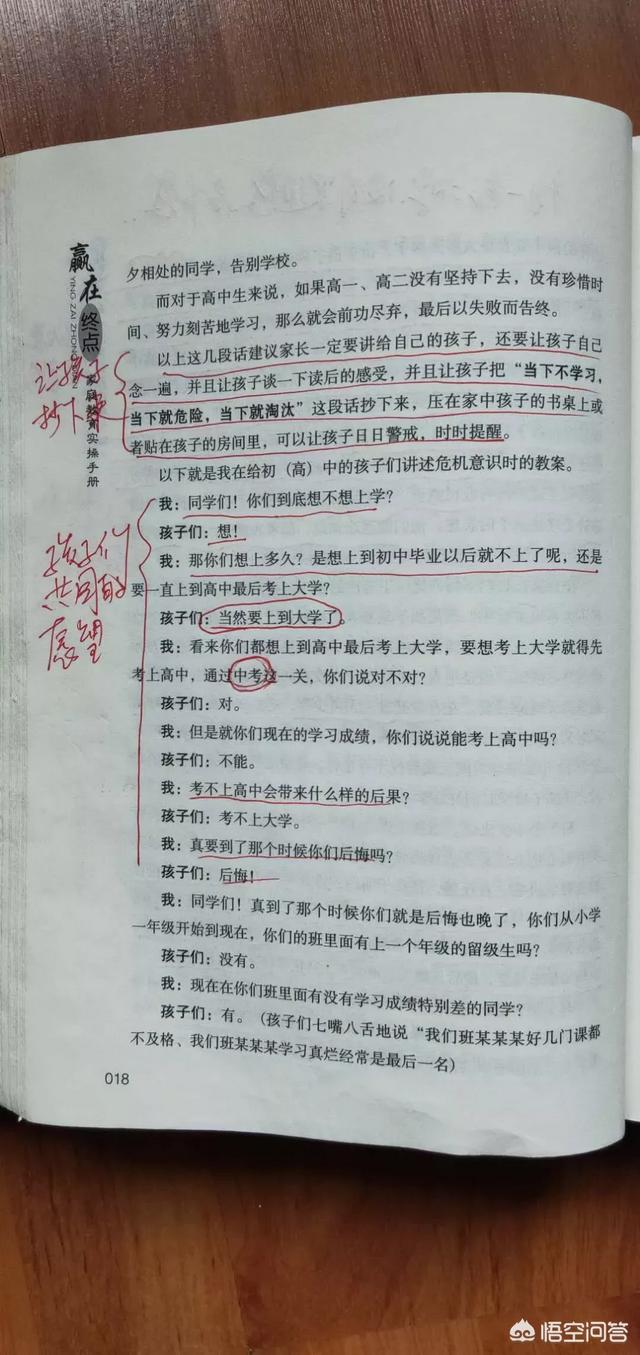 赢在终点
YING ZAI ZHONG
家庭教育实操手册
夕相处的同学，告别学校。
而对于高中生来说，如果高一、高二没有坚持下去，没有珍惜时
间、努力刻苦地学习，那么就会前功尽弃，最后以失败而告终。
以上这几段话建议家长一定要讲给自己的孩子，还要让孩子自己
念一遍，并且让孩子谈一下读后的感受，并且让孩子把“当下不学习，
当下就危险，当下就淘汰”这段话抄下来，压在家中孩子的书桌上或
者贴在孩子的房间里，可以让孩子日日警戒，时时提醒。
以下就是我在给初（高）中的孩子们讲述危机意识时的教案。
我：同学们！你们到底想不想上学？
孩子们：想！
我：那你们想上多久？是想上到初中毕业以后就不上了呢，还是
要一直上到高中最后考上大学？
孩子们：当然要上到大学了。
我：看来你们都想上到高中最后考上大学，要想考上大学就得先
考上高中，通过中考这一关，你们说对不对？
孩子们：对。
我：但是就你们现在的学习成绩，你们说说能考上高中吗？
孩子们：不能。
我：考不上高中会带来什么样的后果？
孩子们：考不上大学。
我：真要到了那个时候你们后悔吗？
孩子们：后悔！
我：同学们！真到了那个时候你们就是后悔也晚了，你们从小学
一年级开始到现在，你们的班里面有上一个年级的留级生吗？
孩子们：没有。
我：现在在你们班里面有没有学习成绩特别差的同学？
孩子们：有。（孩子们七嘴八舌地说“我们班某某某好几门课都
不及格、我们班某某某学习真烂经常是最后一名）
018
让孩子
抄下来
孩子们
共同的
愿望
悟空问答